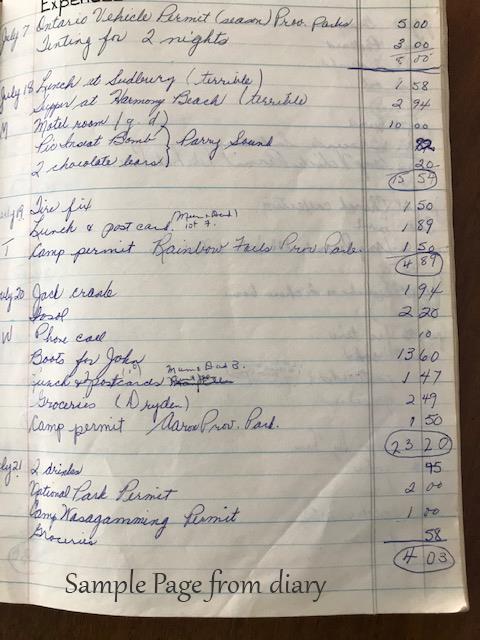 Expenses
July 7 Ontario Vehicle Permit (season) Prov. Parks 5 00
Tenting for 2 nights 3 00
8 00
July 18 Lunch at Sudbury (terrible) 1 58
Supper at Harmony Beach (terrible) 2 94
M Motel room (g. d) 10 00
Pic treat Bomb } Parry Sound 82
2 chocolate bars } 20
15 54
July 19 Tire fix 1 50
Lunch & post card. Mum & Dad 1 89
T Camp permit Rainbow Falls Prov Park. 1 50
4 89
July 20 Jack crank 1 94
2 20
W Phone call 10
Boots for John 13 60
Lunch & 2 postcards Mum & Dad 1 47
Groceries (Dryden) 2 49
Camp permit Aaron Prov. Park. 1 50
23 20
July 21 2 drinks 45
National Park Permit 2 00
Camp Wasagamming Permit 1 00
Groceries 58
4 03
Sample Page from diary